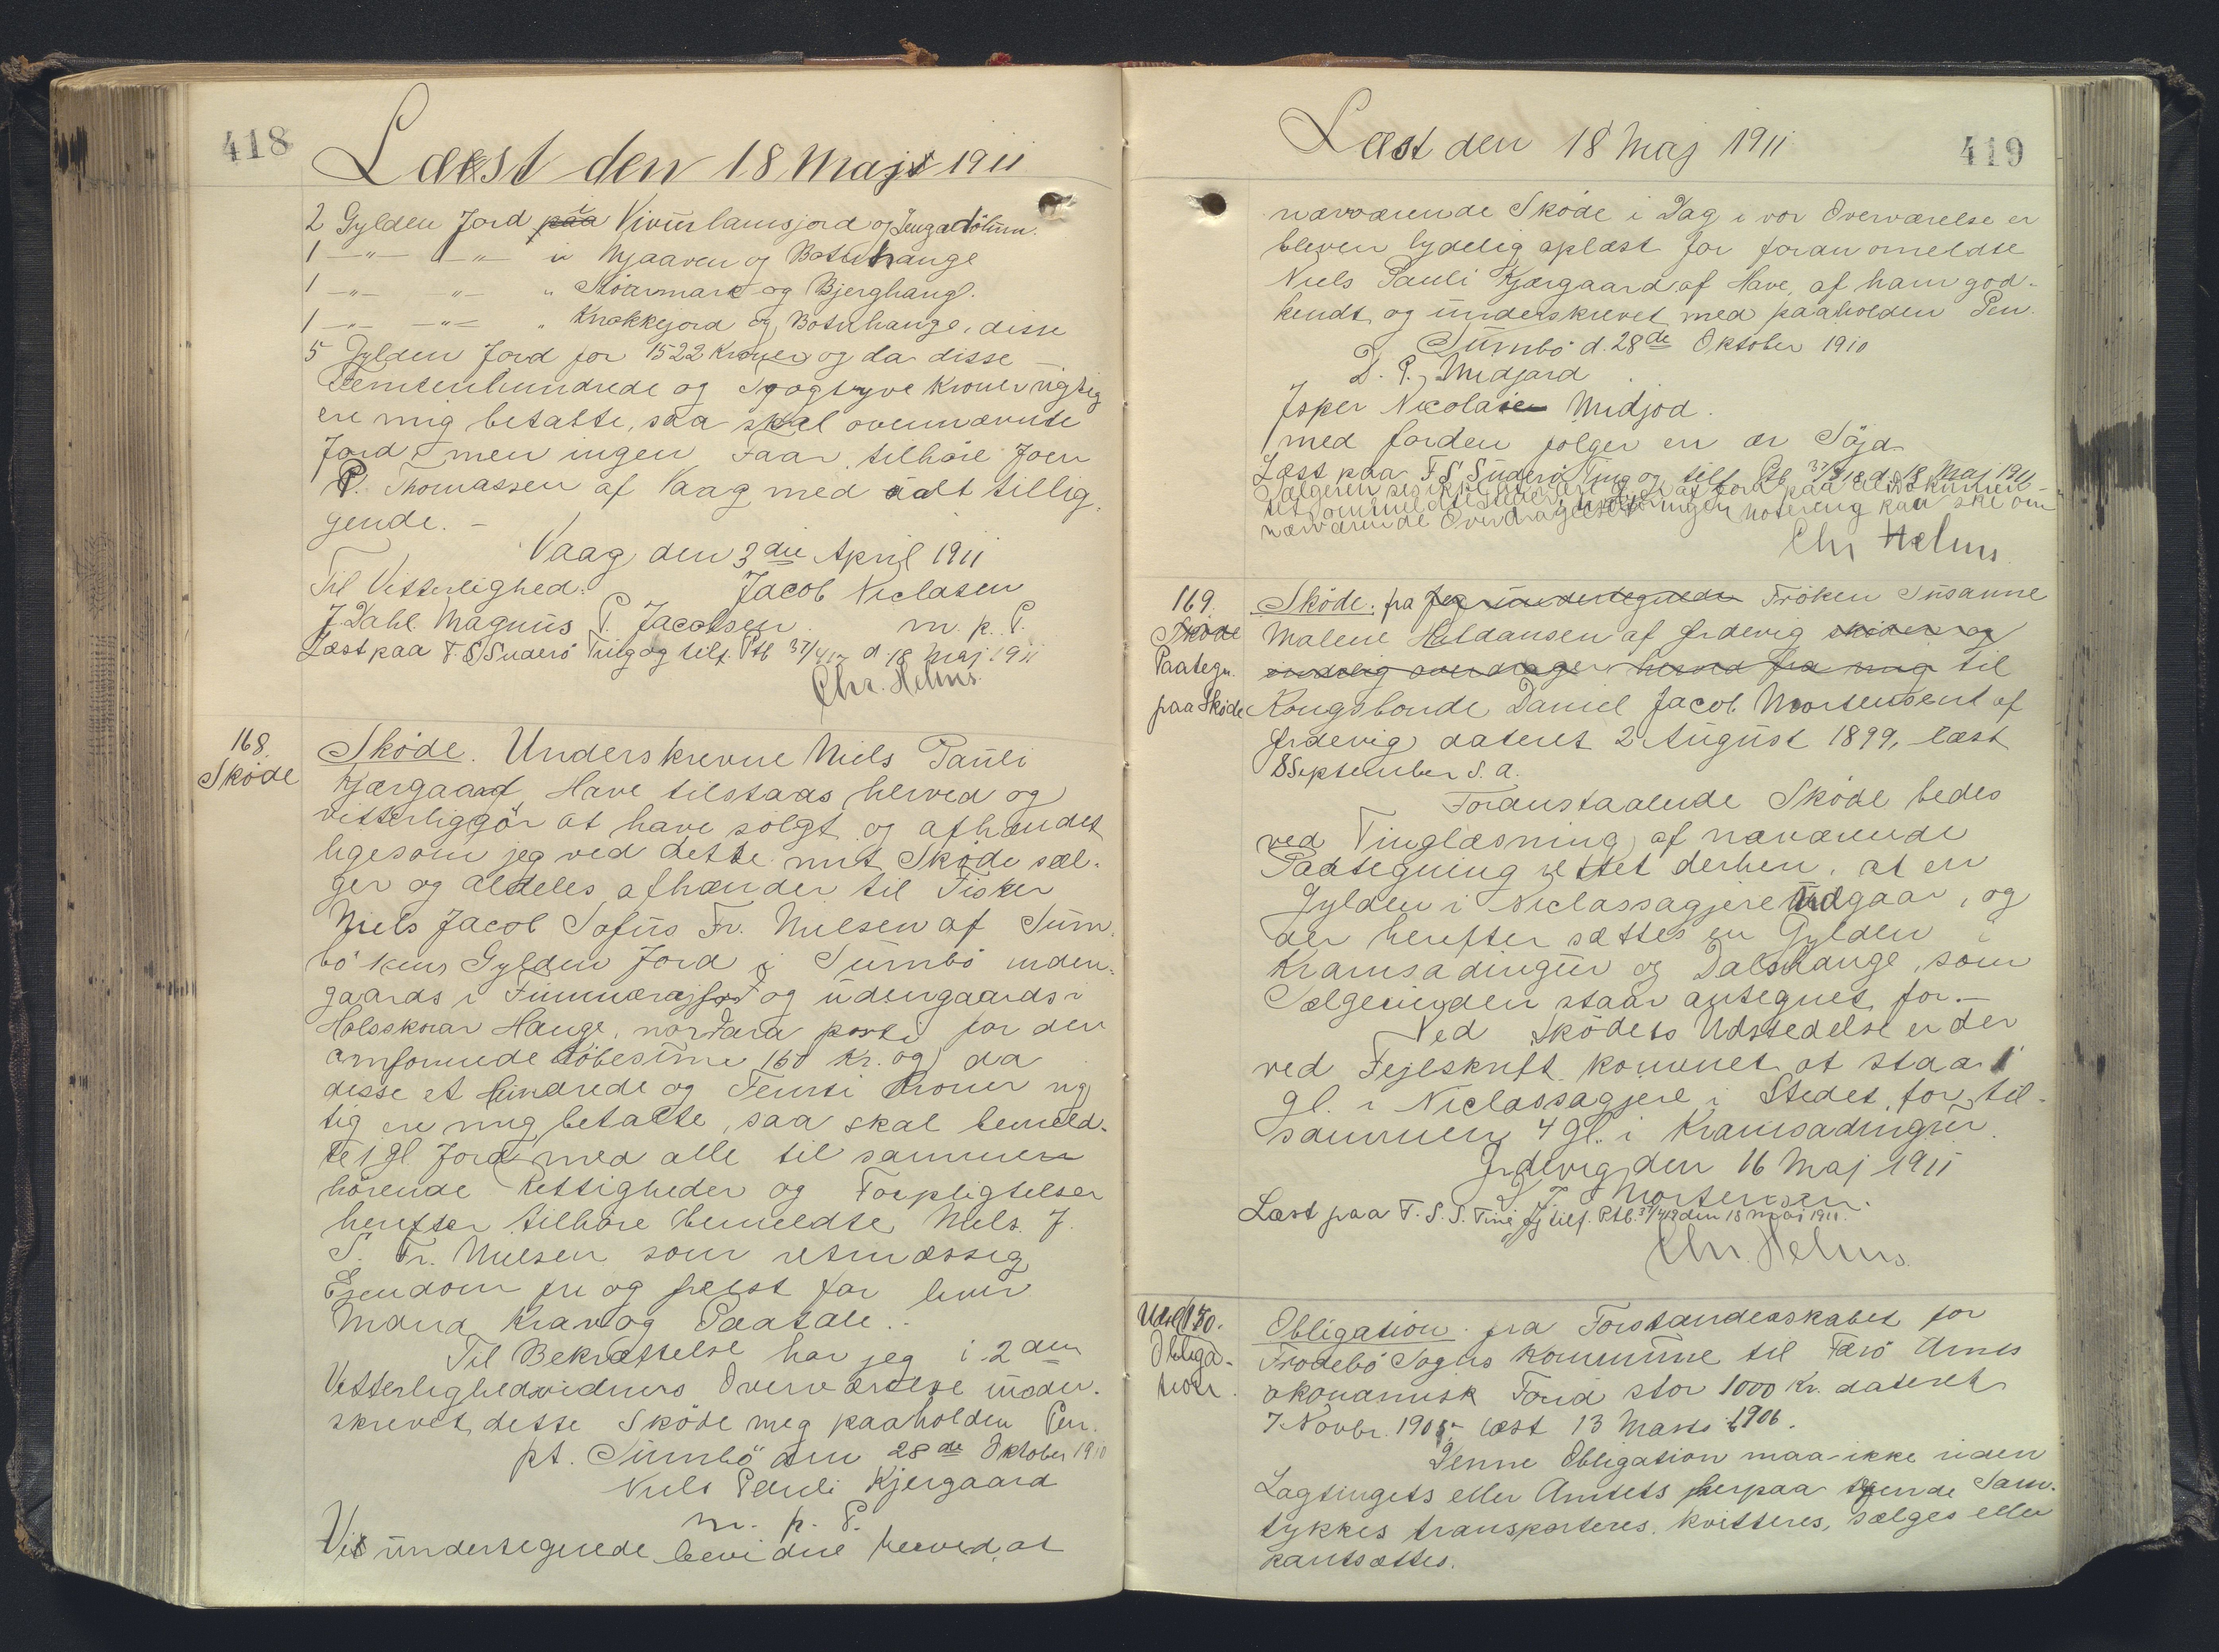 418
Læst den 18 Maj 1911
2 Gylden Jord paa i Vivurhamsjord og
1 -"- -"- i Mjaaven og Botnhange
1 -"- -"- " og Bjerghang.
1 -"- -"- " Knokkejord og Botnhange, disse
5 Gylden Jord for 1522 Kroner og da disse
Femtenhundrede og Toogtyve Kroner rigtig
ere mig betalte, saa skal ovennævnte
Jord men ingen Faar tilhøre Joen
P. Thomassen af Vaag med alt tillig-
gende. -
Vaag den 3die April 1911
Til Vitterlighed: Jacob Niclasen
J. Dahl Magnus P. Jacobsen. m. p. P.
Læst paa F. S. Suderö Ting og tilf. Ptb 37/417 d. 18 Maj 1911
Chr. Helms.
168.
Sköde
Sköde. Underskrevne Niels Pauli
Kjærgaard, Have tilstaas herved og
vitterliggör at have solgt og afhændet
ligesom jeg ved dette mit Sköde sæl-
ger og aldeles afhænder til Fisker
Niels Jacob Sofus Fr. Nielsen af Sum-
bö 1 een Gylden Jord i Sumbö inden-
gaards i og udengaards i
Hange, nordara parti for den
omforenede Köbesum 150 Kr. og da
disse et Hundrede og Femti Kroner rig
tig ere mig betalte, saa skal bemeld-
te 1 gl. Jord med alle til sammen
hörende Rettigheder og Forpligtelser
herefter tilhöre bemeldte Niels J.
S. Fr. Nielsen som retmæssig
Ejendom fri og frelst for hver
Mand Krav og Paatale. -
Til Bekræftelse har jeg i 2 dem
Vitterlighedsvidners Overværelse under-
skrevet dette Sköde meg paaholden Pen.
pt. Sumbö den 28de Oktober 1910
Niels Pauli Kjergaard
m. p. P.
Vi undertegnede bevidne herved, at
419
Læst den 18 Maj 1911
nærværende Sköde i Dag i vor Overværelse er
bleven lydelig oplæst for foranomeldte
Niels Pauli Kjærgaard af Have, af ham god-
kendt og underskrevet med paaholden Pen.
Sumbö d. 28de Oktober 1910
D. P. Midjord
Jsper Nicolaisen Midjod.
med Jorden fölger en ær Söjd
Læst paa F S Suderö Ting og tilf. Ptb 37/418 d. 18 Maj 1911
Sælgeren ses ikke at være ejer af Jord paa
nærværende Overdragelse ingen Notering kan ske om
Chr Helms
169.
Sköde
Paategn.
paa Sköde
Sköde: fra Jeg undertegnede Fröken Susanne
Malene Holdansen af Ördevig skøder og
endelig overdrager herved fra mig til
Kongsbonde Daniel Jacob Mortensen af
Ördevig dateret 2 August 1899, læst
8 September s. a.
Foranstaaende Sköde bedes
ved Tinglæsning af nærværende
Paategning rettet derhen, at en
Gylden i Niclassagjere udgaar, og
der herefter sættes en Gylden i
Kramsadingur og Dalshange, som
Sælgerinden staar antegnet for. -
Ved Sködets Udstedelse er der
ved Fejlskrift kommet at staa 1
gl. i Niclassagjere i Stedet for til-
sammen 4 gl. i Kramsadingur.
Ördevig den 16 Maj 1911
D. J. Mortensen.
Læst paa F. S. S. Ting og tilf. Ptb. 37/419 den 18 Maj 1911.
Chr. Helms.
Udsl 170.
Obliga-
tion.
Obligation fra Forstanderskabet for
Frodebö Sogns Kommune til Færö Amts
ökonomisk Fond stor 1000 Kr. dateret
7 Novbr. 1905 læst 13 Marts 1906.
Denne Obligation maa ikke uden
Lagtingets eller Amtets herpaa tegnede Sam-
tykkes transporteres, kvitteres, sælges eller
pantsættes.